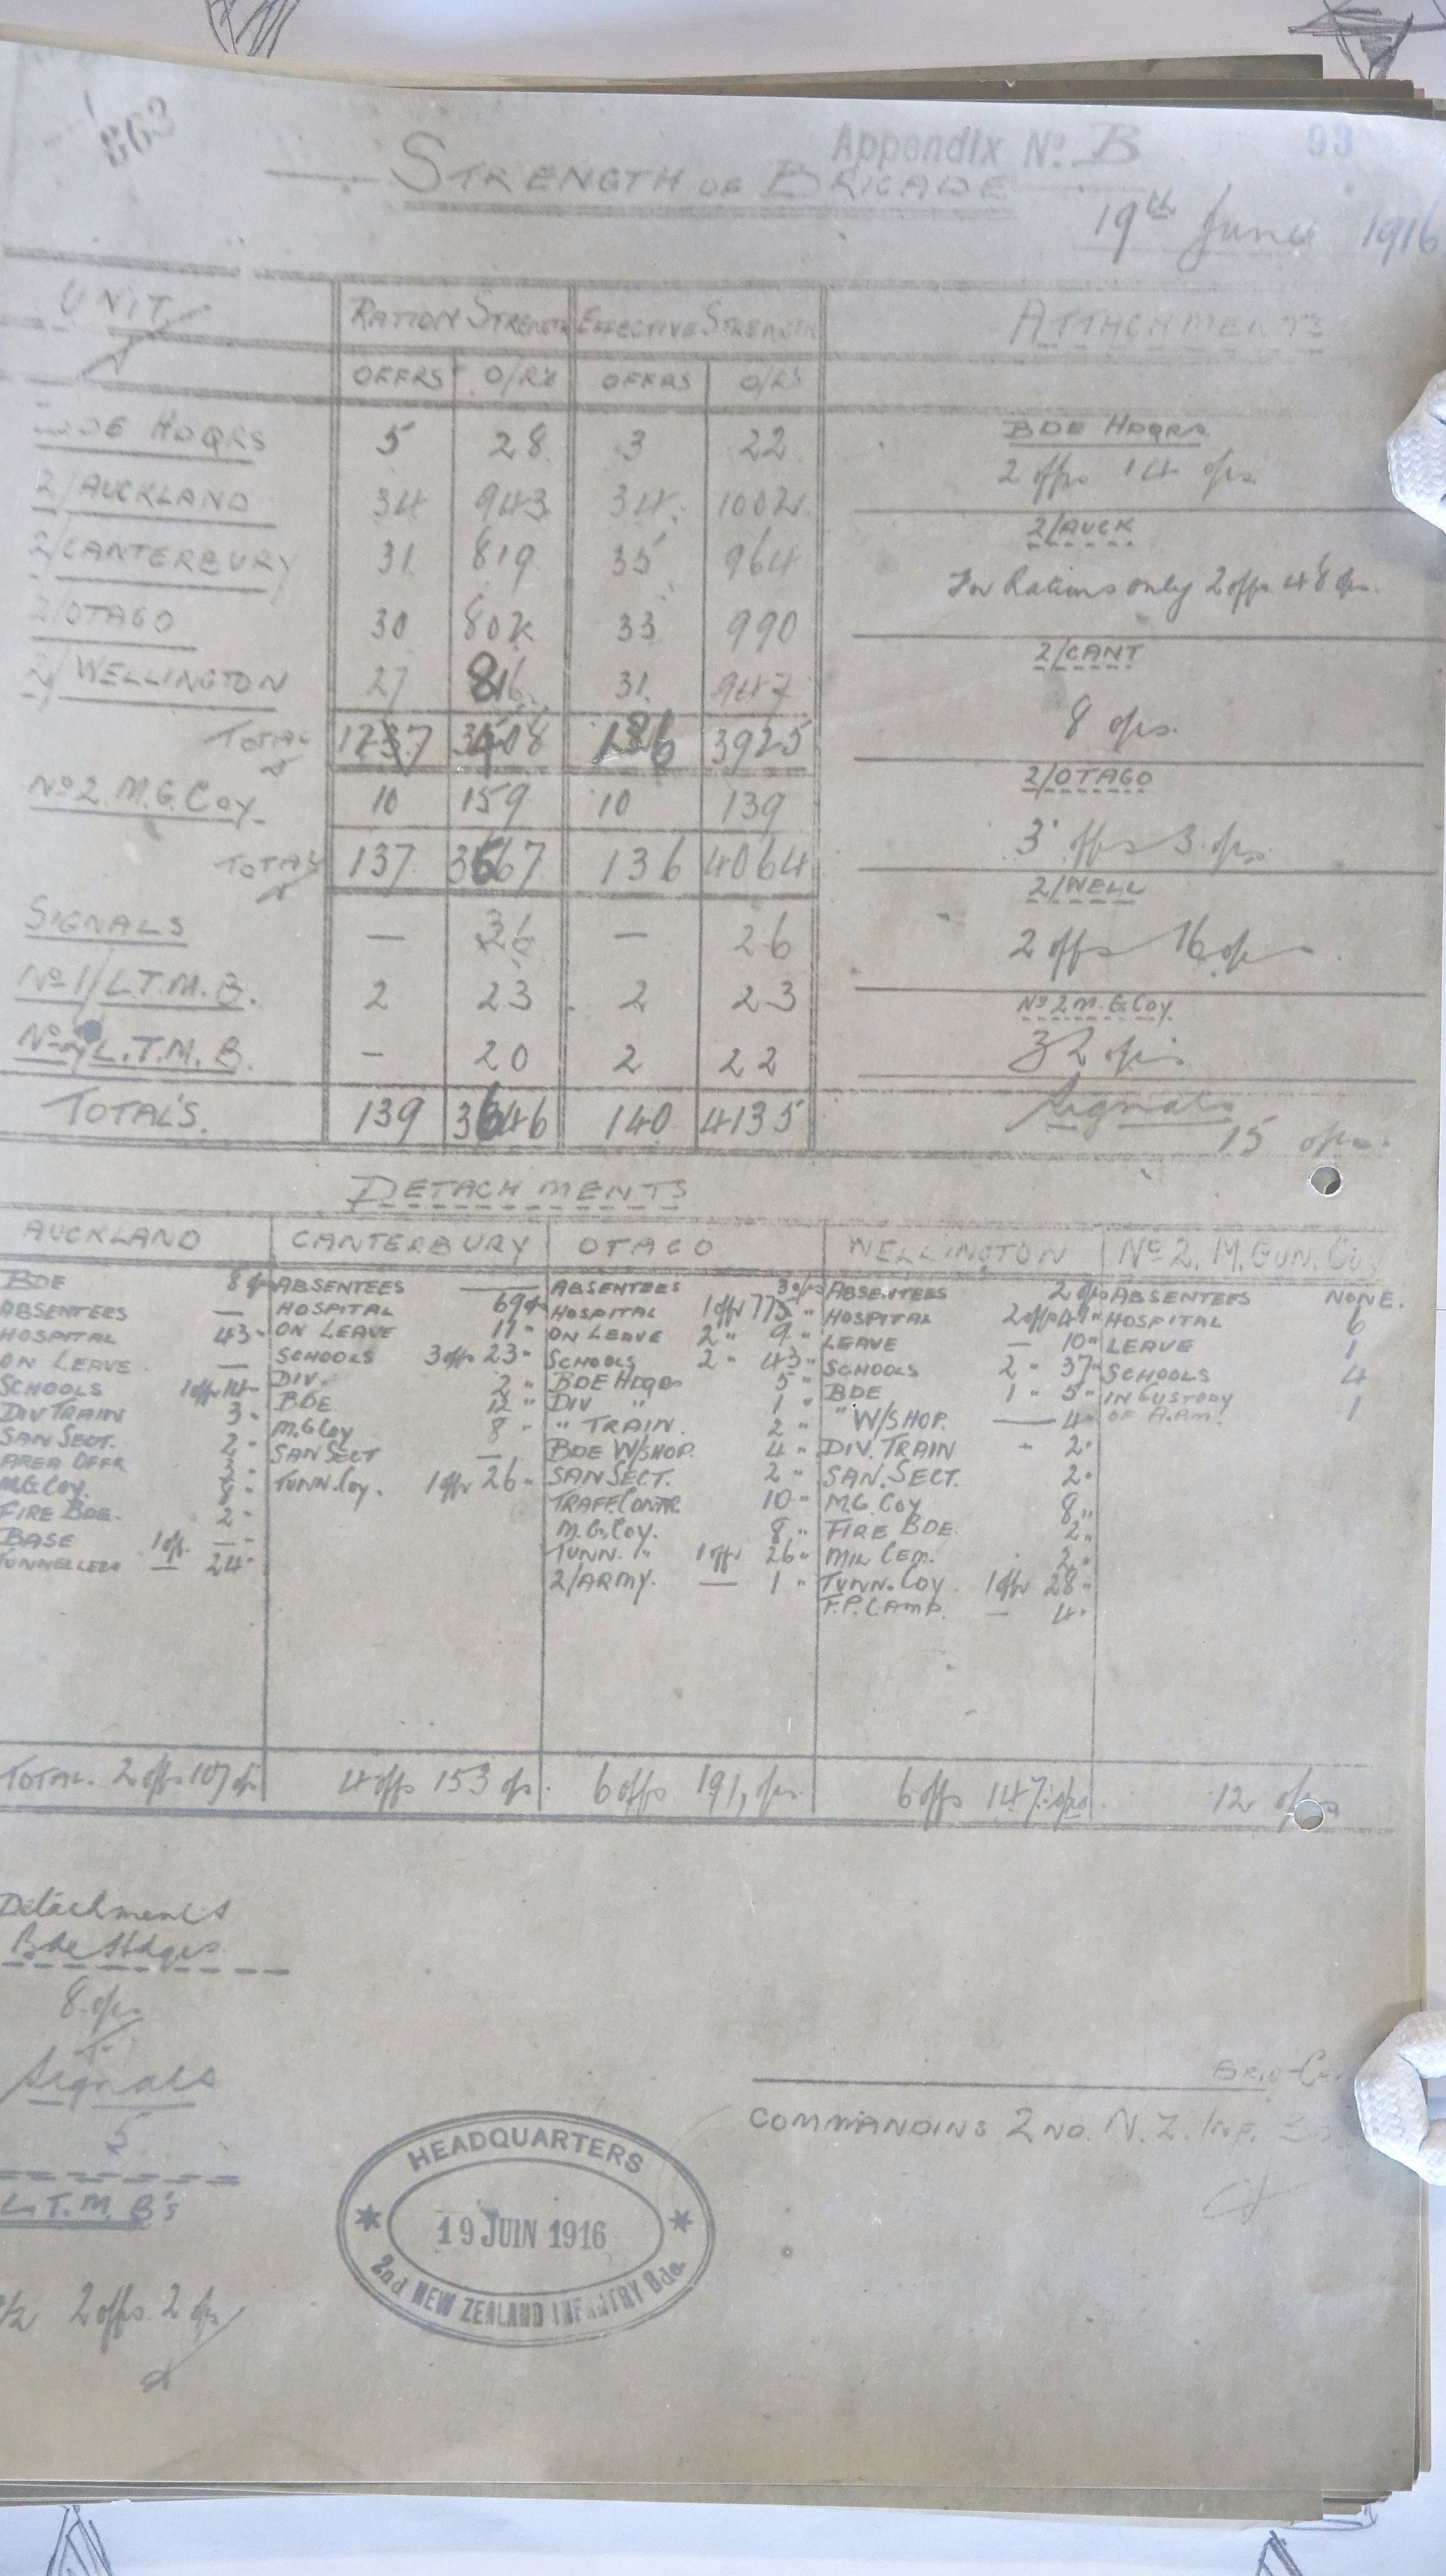 863
Appendix No. B 93
STRENGTH OF BRIGADE
19th June 1916
UNIT. RATION STRENGTH EFFECTIVE STRENGTH ATTACHMENTS
OFFRS O/R's OFFRS O/R's
BDE HDQRS 5 28 3 22
2/AUCKLAND 34 943 34 1002
2/CANTERBURY 31 819 35 964
2/OTAGO 30 802 33 990
2/WELLINGTON 27 816 31 947
TOTAL 127 3408 136 3925
No 2. M.G. Coy. 10 159 10 139
TOTAL 137 3567 136 4064
SIGNALS — 36 — 26
No 1/L.T.M.B. 2 23 2 23
L.T.M.B. – 20 2 22
TOTAL'S. 139 3646 140 4135
BDE HDQRS.
2 offrs 14 ors.
2/AUCK
For Rations only 2 offrs 48 ors.
2/CANT
8 ors.
2/OTAGO
3 offrs 3 ors
2/WELL
2 offrs 16 ors
No 2 M.G. Coy.
32 ors
Signals
15 ors.
DETACHMENTS
AUCKLAND
BDE 8 ors
ABSENTEES —
HOSPITAL 43 "
ON LEAVE —
SCHOOLS 1 offr 14 "
DIV TRAIN 3 "
SAN SECT. 2 "
AREA OFFR
M.G. Coy. 8 "
FIRE BDE. 2 "
BASE 1 ofr. —
TUNNELLERS — 24 "
TOTAL. 2 offrs 107 ors
CANTERBURY
ABSENTEES —
HOSPITAL 69 ors
ON LEAVE 11 "
SCHOOLS 3 offrs 23 "
DIV. 2 "
BDE 12 "
M.G. Coy 8 "
SAN SECT —
TUNN. Coy. 1 offr 26 "
4 offs 153 ors.
OTAGO
ABSENTEES 3 ors
HOSPITAL 1 offr 77 "
ON LEAVE 2 " 9 "
SCHOOLS 2 " 43 "
BDE HDQRS 5 "
DIV " 1 "
" TRAIN. 2 "
BDE W/SHOP. 4 "
SAN SECT. 2 "
TRAFF. CONTR. 10 "
M.G. Coy. 8 "
TUNN. " 1 offr 26 "
2/ARMY. — 1 "
6 offs 191, ors.
WELLINGTON
ABSENTEES 2 ors
HOSPITAL 2 offrs 41 "
LEAVE — 10 "
SCHOOLS 2 " 37 "
BDE 1 " 5 "
" W/SHOP. — 4 "
DIV. TRAIN - 2 "
SAN. SECT. 2 "
M.G. Coy 8 "
FIRE BDE. 2 "
MIL CEM. 2 "
TUNN. Coy 1 offr 28 "
F.P. CAMP. — 4 "
6 offs 147 ors
No 2. M. GUN. Coy
ABSENTEES NONE.
HOSPITAL 6
LEAVE 1
SCHOOLS 4
IN CUSTODY
OF A.P.M. 1
12 ors
Detachments
Bde Hdqrs
8 ors.
Signals
5
L.T.M.B's
2 offs 2 ors
BRIG-
COMMANDING 2ND. N.Z. INF.
HEADQUARTERS
19 JUIN 1916
2nd NEW ZEALAND INFANTRY Bde.